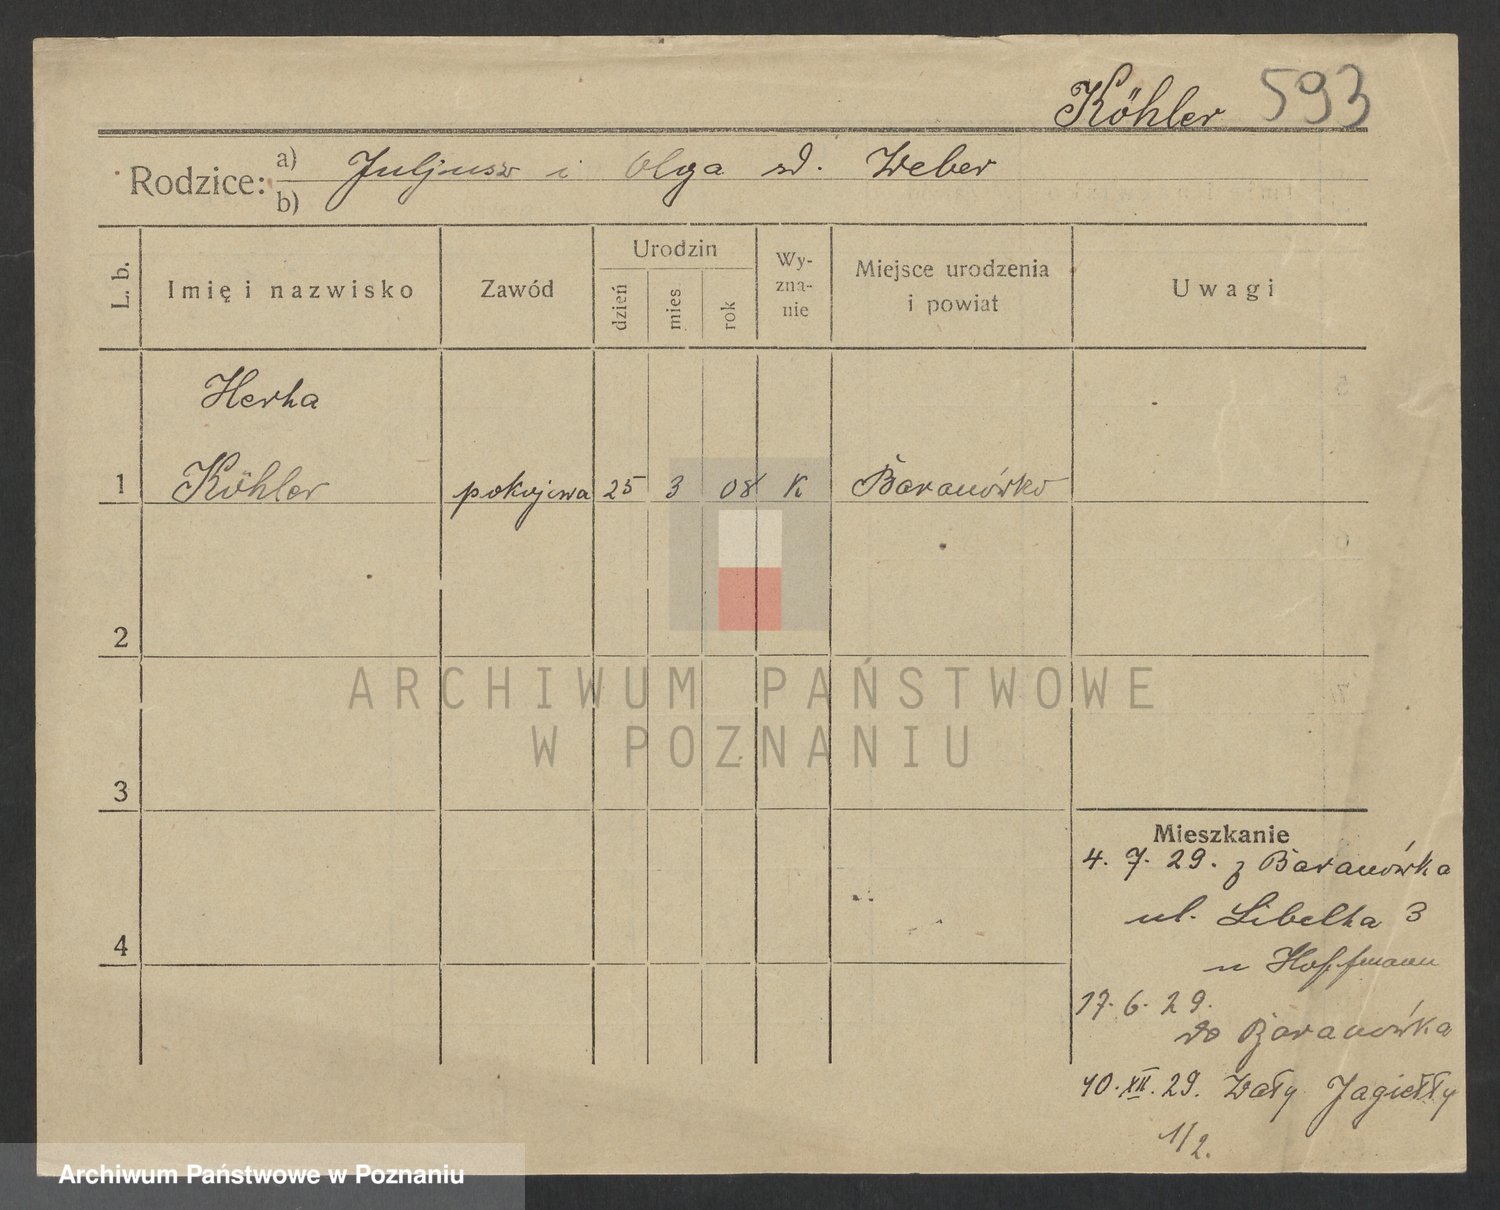 Köhler 593
Rodzice: a) Juljusz i Olga zd. Weber
b)
L. b.
Imię i nazwisko
Zawód
Urodzin
dzień
mies
rok
Wy-
zna-
nie
Miejsce urodzenia
i powiat
Uwagi
Herta
1 Köhler pokojowa 25 3 08 K Baranówko
2
3
4
Mieszkanie
4. 7. 29. z Baranówka
ul. Libelta 3
u Hoffmann
17. 6. 29.
do Baranówka
10. XII. 29. Wały Jagiełły
1/2.
ARCHIWUM PAŃSTWOWE
W POZNANIU
Archiwum Państwowe w Poznaniu